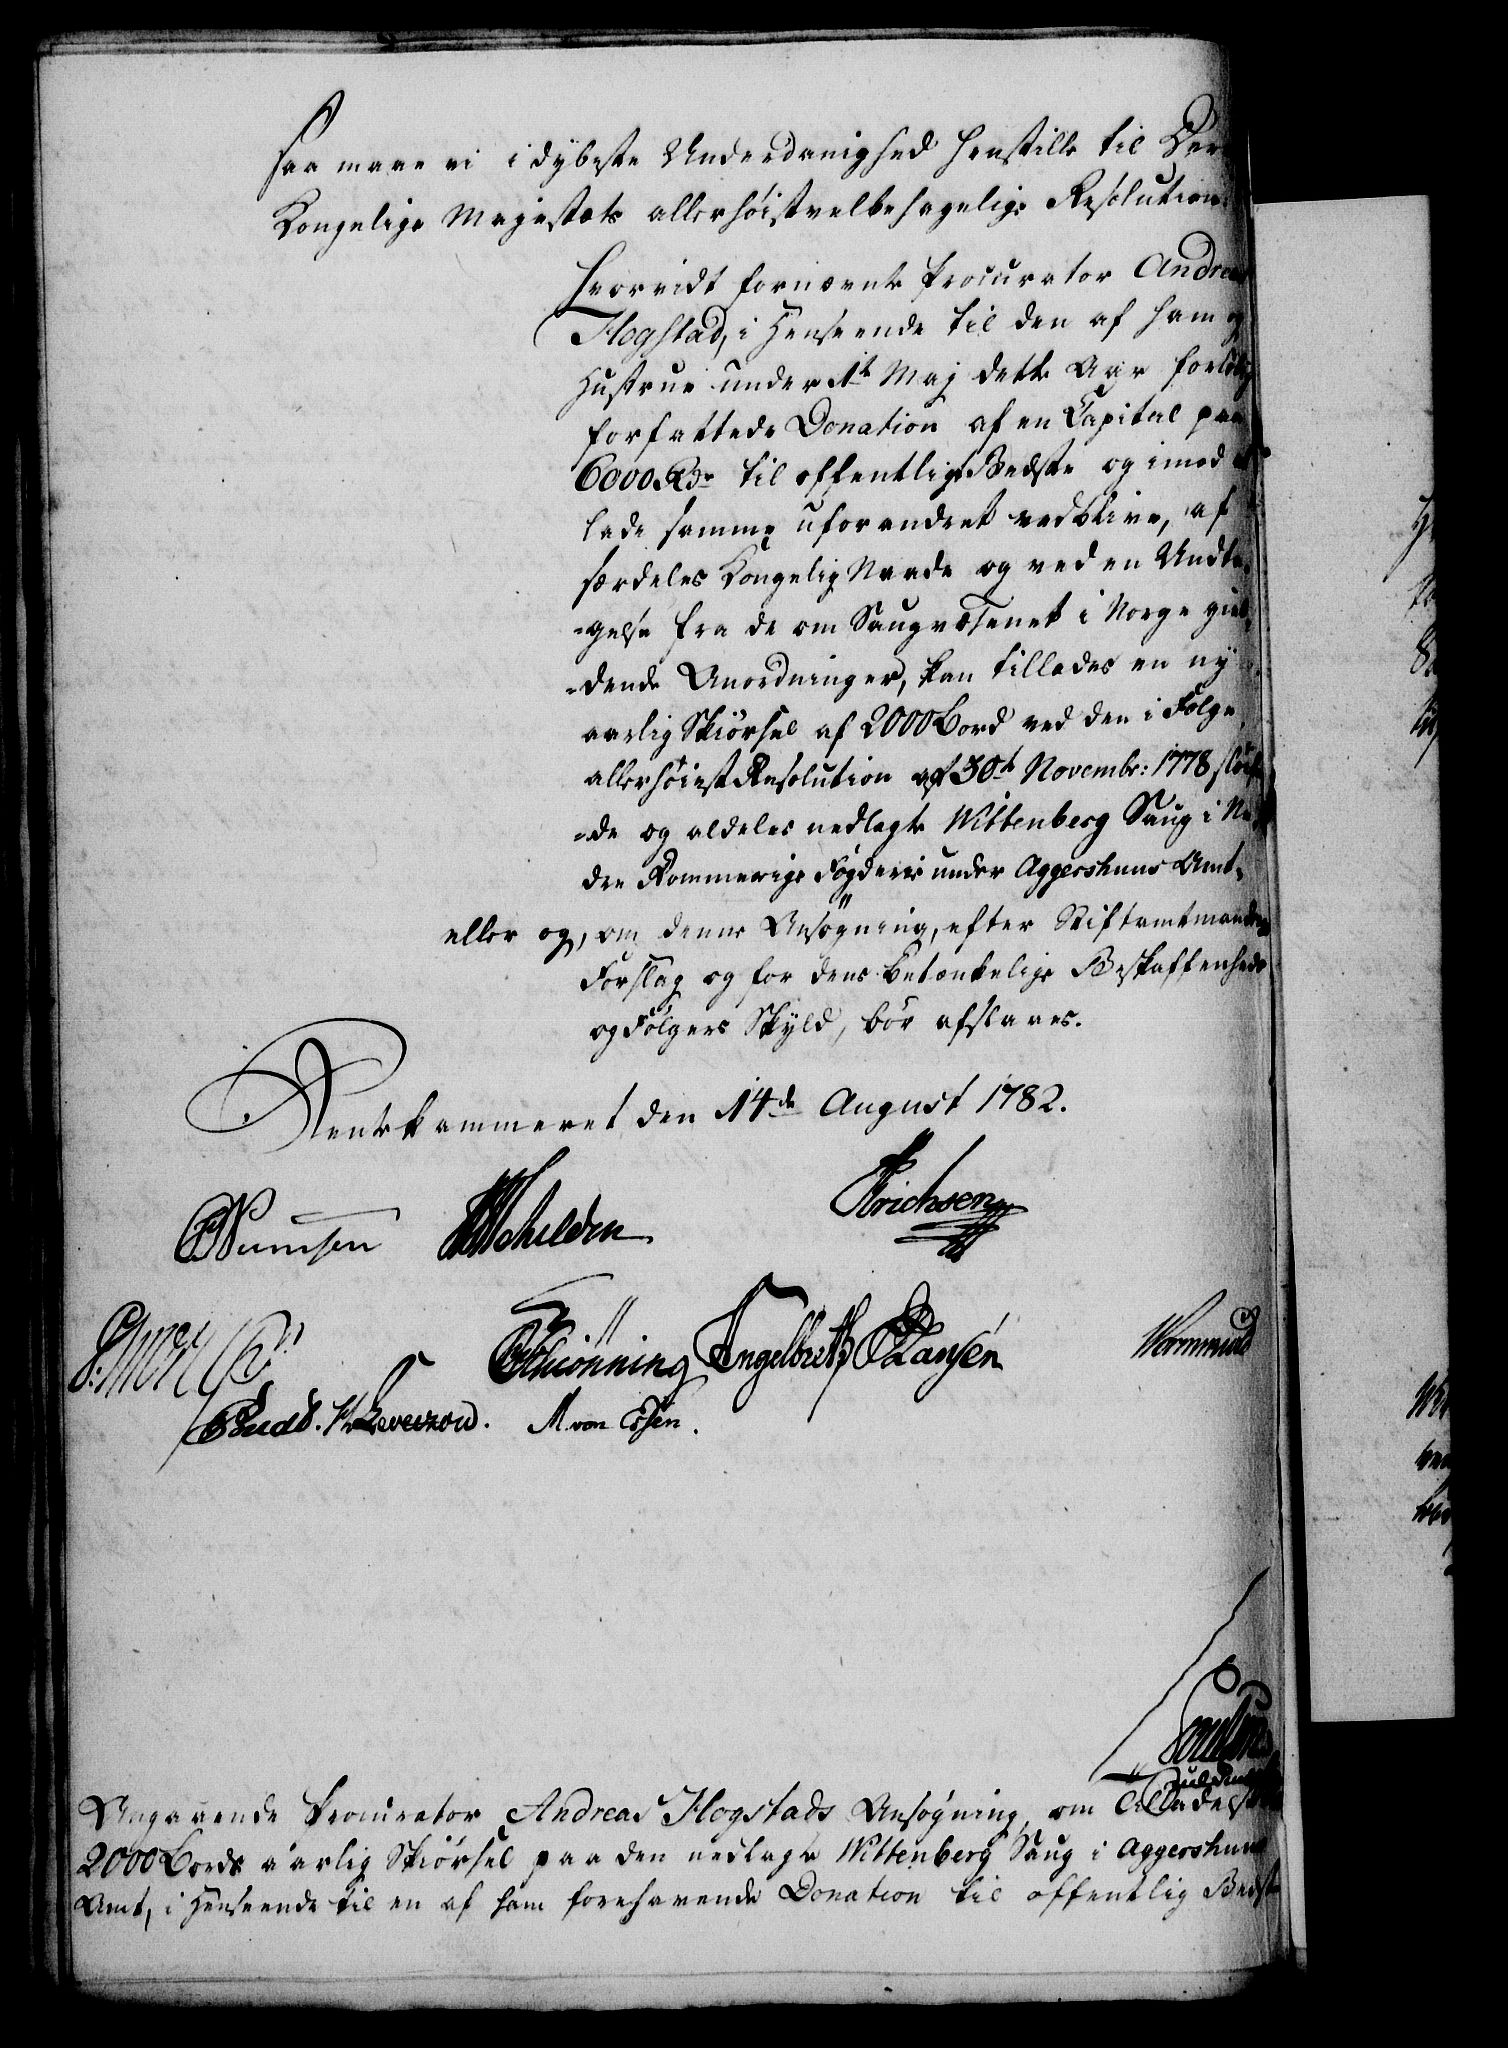 saa maae vi i dybeste Underdanighed henstille til Der
Kongelige Majestæts allerhøistvelbehagelige Resolution:
Hvorvidt fornævnte Procurator Andreas
Flogstad, i Henseende til den af ham og
Hustrue under 1t Maj dette Aar forlobig
forfattede Donation af en Capital paa
6000 Rd. til offentlig Bedste og imod at
lade samme uforandret vedblive, af
særdeles Kongelig Naade og ved en Undta-
-gelse fra de om Saugvæsenet i Norge giel-
-dende Anordninger, kan tillades en ny
aarlig Skiørsel af 2000 Bord ved den i Følge
allerhøiest Resolution af 30t Novembr: 1778 sløif
-de og aldeles nedlagte Wittenberg Saug i Ne
dre Rommerige Fogderie under Aggershuus Amt,
eller og, om denne Ansøgning, efter Stiftamtmandens
Forslag og for dens betænkelige Beskaffenheds
og Følgers Skyld, bør afslaaes.
Rentekammeret den 14de August 1782.
Numsen Schilden Erichsen
Schiönning Engelbreth Hansen Wormskiold
Levetzow. M. von Essen.
Angaaende Procurator Andreas Flogstads Ansøgning, om Tilladelse
2000 Bords aarlig Skiørsel paa den nedlagte Wittenberg Saug i Aggershuus
Amt, i Henseende til en af ham forehavende Donation til offentlig Bedste